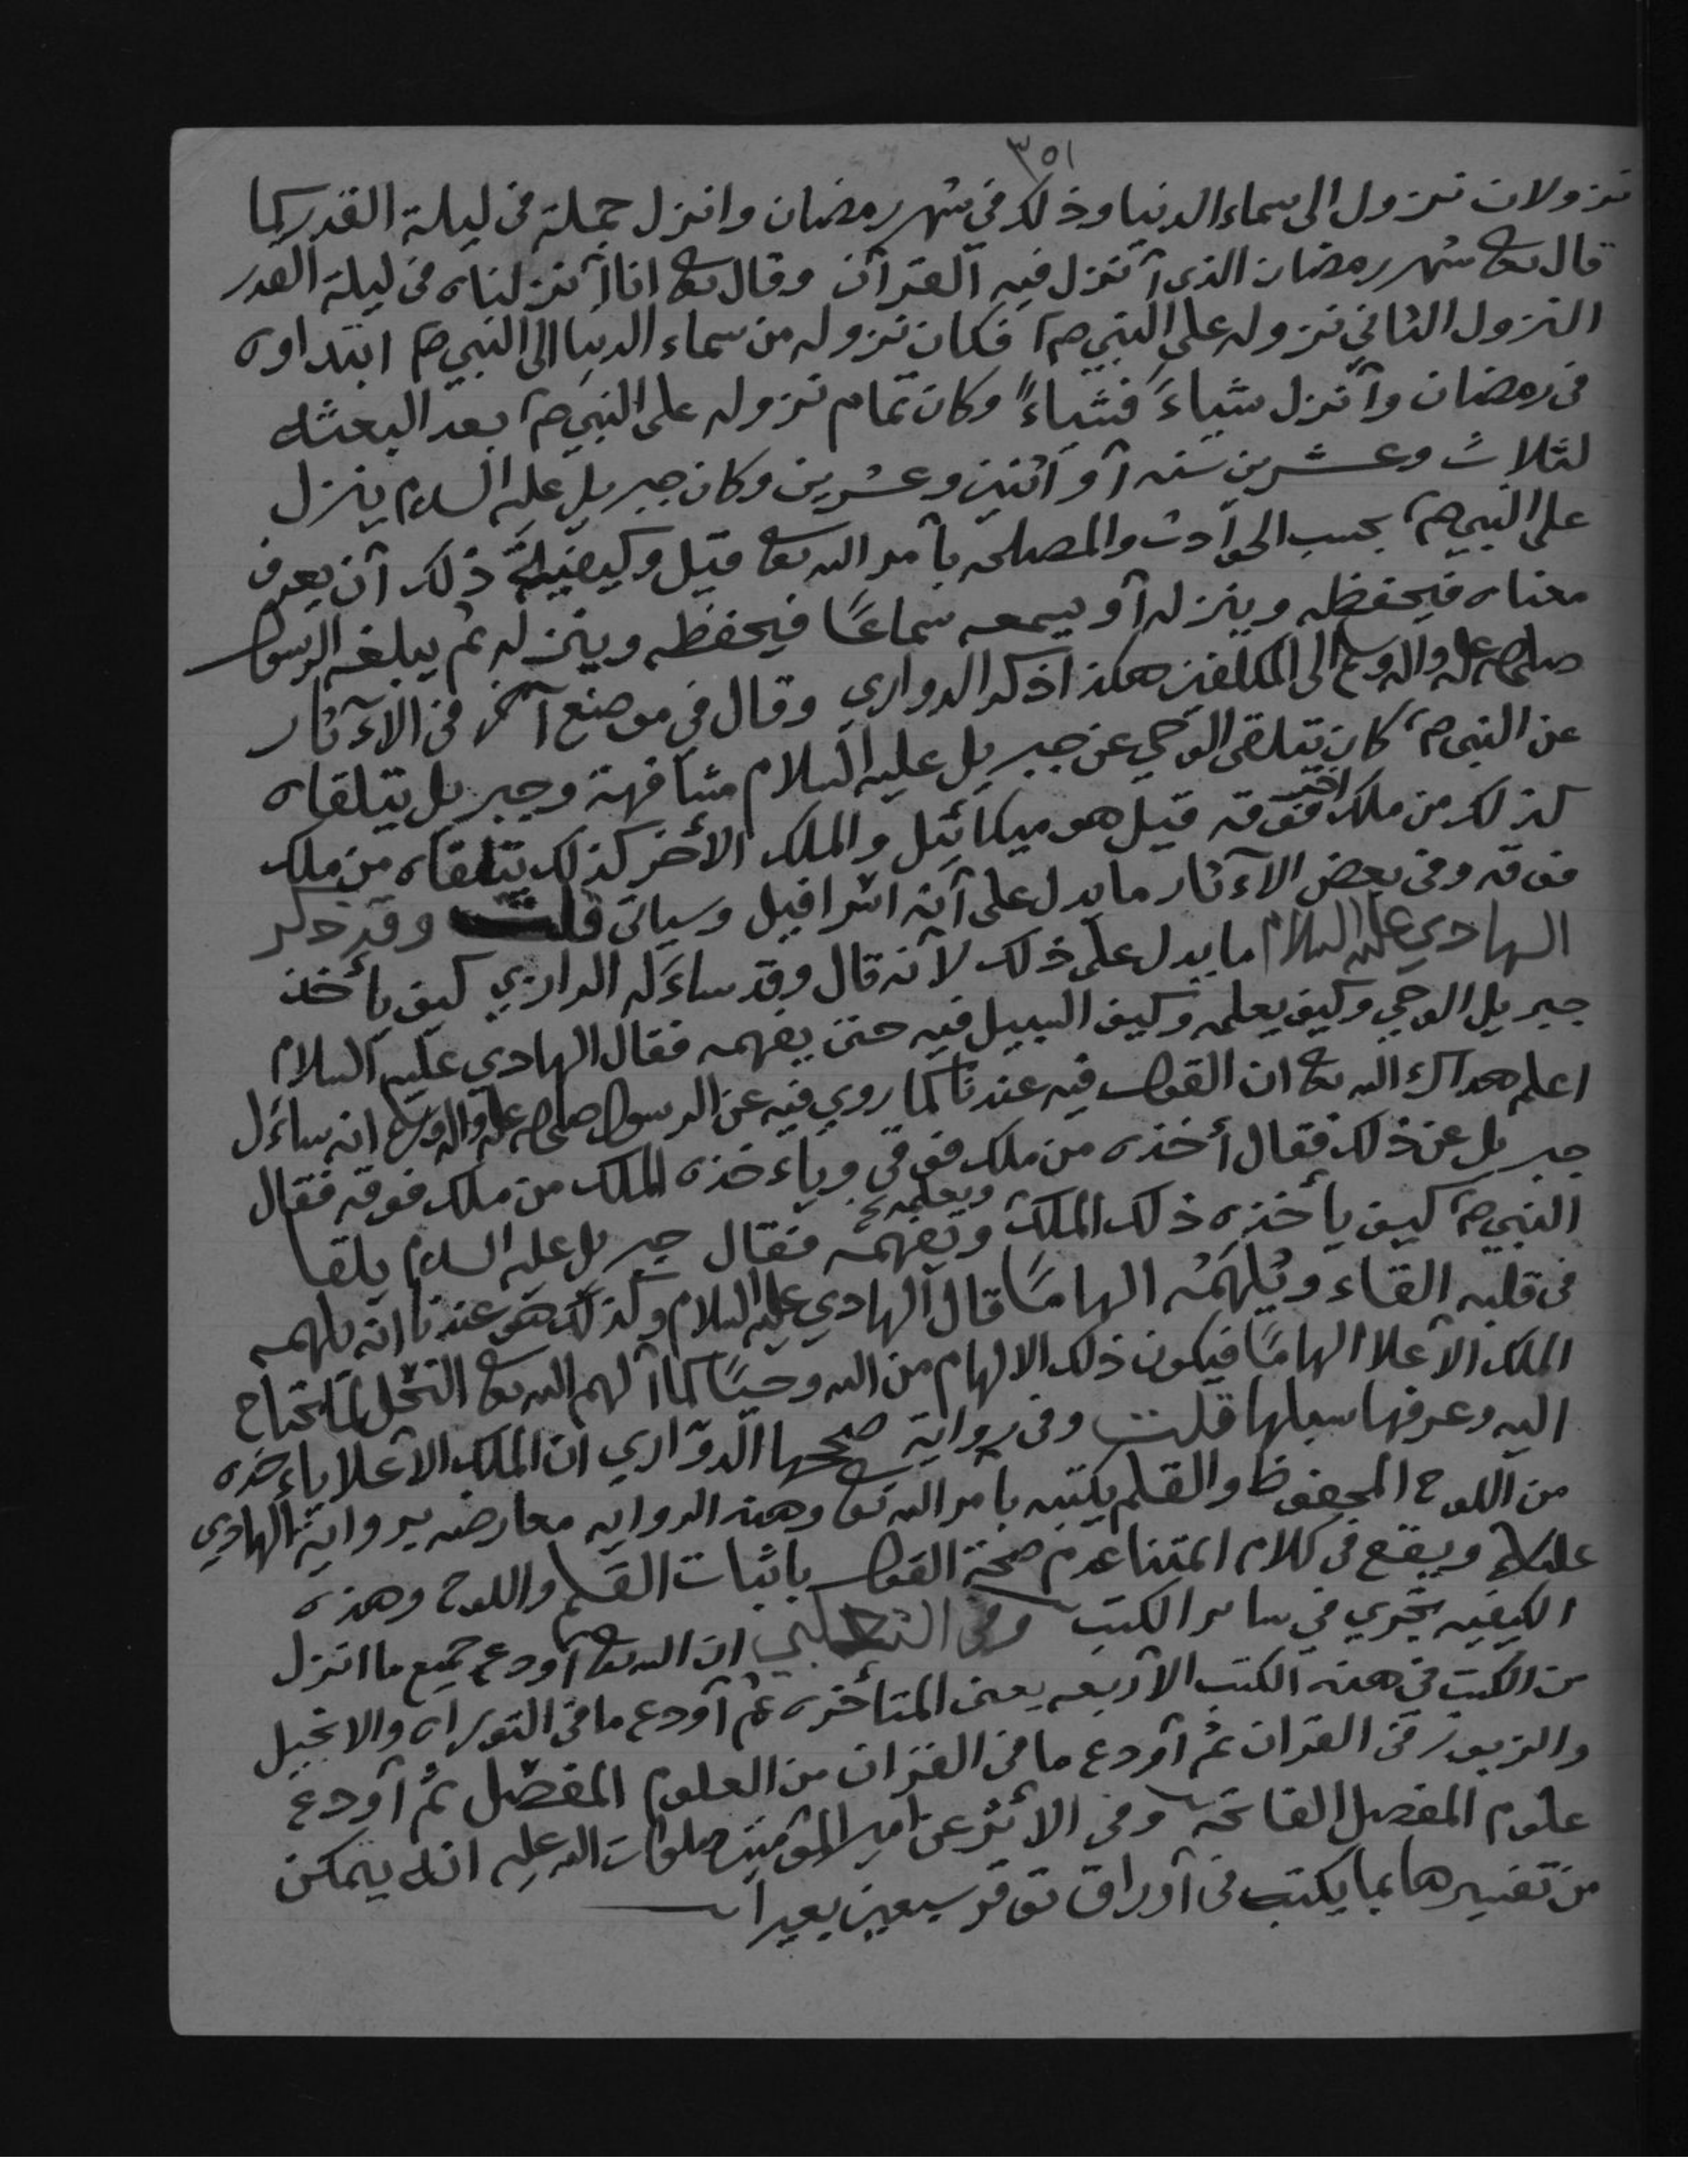 ٣٥١
نزولان نزول الى سماء الدنيا وذلك في شهر رمضان وانزل جملة في ليلة القدر كما
قال تعا شهر رمضان الذى أنزل فيه القرآن وقال تعا انا أنزلناه في ليلة القدر
النزول الثاني نزوله على النبي صم فكان نزوله من سماء الدنيا الى النبي صم ابتداوه
في رمضان وأنزل شياءً فشياءً وكان تمام نزوله على النبي صم بعد البعثه
لثلاث وعشرين سنه أو اثنين وعشرين وكان جبريل عليه السلام ينزل
على النبي صم بحسب الحوادث والمصلحه بأمر الله تعا قيل وكيفية ذلك أن يعرف
معناه فيحفظه وينزله أو يسمعه سماعًا فيحفظه وينزله ثم يبلغه الرسول
صلى الله عليه واله وسلم الى المكلفين هكذا ذكر الدواري وقال في موضع آخر في الآثار
عن النبي صم كان يتلقى الوحي عن جبريل عليه السلام مشافهة وجبريل يتلقاه
كذلك من ملك آخر فوقه قيل هو ميكائيل والملك الأخر كذلك يتلقاه من ملك
فوقه وفي بعض الآثار ما يدل على أنه اسرافيل وسياتي قلت وقد ذكر
الهادي عليه السلام ما يدل على ذلك لأنه قال وقد ساءله الرازي كيف يأخذ
جبريل الوحي وكيف يعلمه وكيف السبيل فيه حتى يفهمه فقال الهادي عليه السلام
اعلم هداك الله تعا ان القول فيه عندنا كما روي فيه عن الرسول صلى الله عليه واله وسلم انه ساءل
جبريل عن ذلك فقال أخذه من ملك فوقي وياءخذه الملك من ملك فوقه فقال
النبي صم كيف يأخذه ذلك الملك ويفهمه ويعلمه خ فقال جبريل عليه السلام يلقا
في قلبه القاء ويُلهَمُه الهامًا قال الهادي عليه السلام وكذلك هو عندنا انه يلهمه
الملك الأعلا الهامًا فيكون ذلك الالهام من الله وحيًا كما ألهم الله تعا النحل لما تحتاج
اليه وعرفها سبلها قلت وفي رواية صححها الدوّاري ان الملك الأعلا ياءخذه
من اللوح المحفوظ والقلم يكتبه بأمر الله تعا وهذه الروايه معارضه برواية الهادي
عليلم ويقع في كلام امتنا عدم صحة القول باثبات القلم واللوح وهذه
الكيفيه تجري في سائر الكتب وفي الثعلبي ان الله تعا أودع جميع ما انزل
من الكتب في هذه الكتب الأربعه يعني المتأخره ثم أودع ما في التوراه والانجيل
والزبور في القران ثم أودع ما في القران من العلوم المفصّل ثم أودع
علوم المفصل الفاتحه وفي الأثر عن امير المؤمنين صلوات الله عليه انه يتمكن
من تفسيرها بما يكتب في أوراق توقر سبعين بعيراً